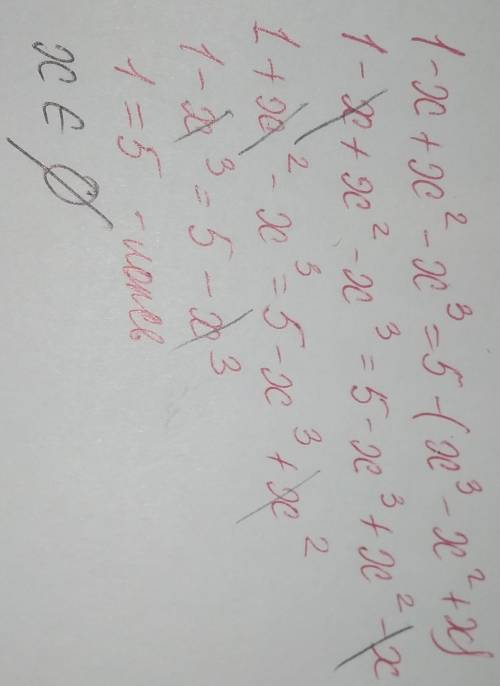 1 - x + x² - x³ = 5 - (x³ - x² + x)
1 - x + x² - x³ = 5 - x³ + x² - x
1 + x² - x³ = 5 - x³ + x²
1 - x³ = 5 - x³
1 = 5 -
x ∈ ∅